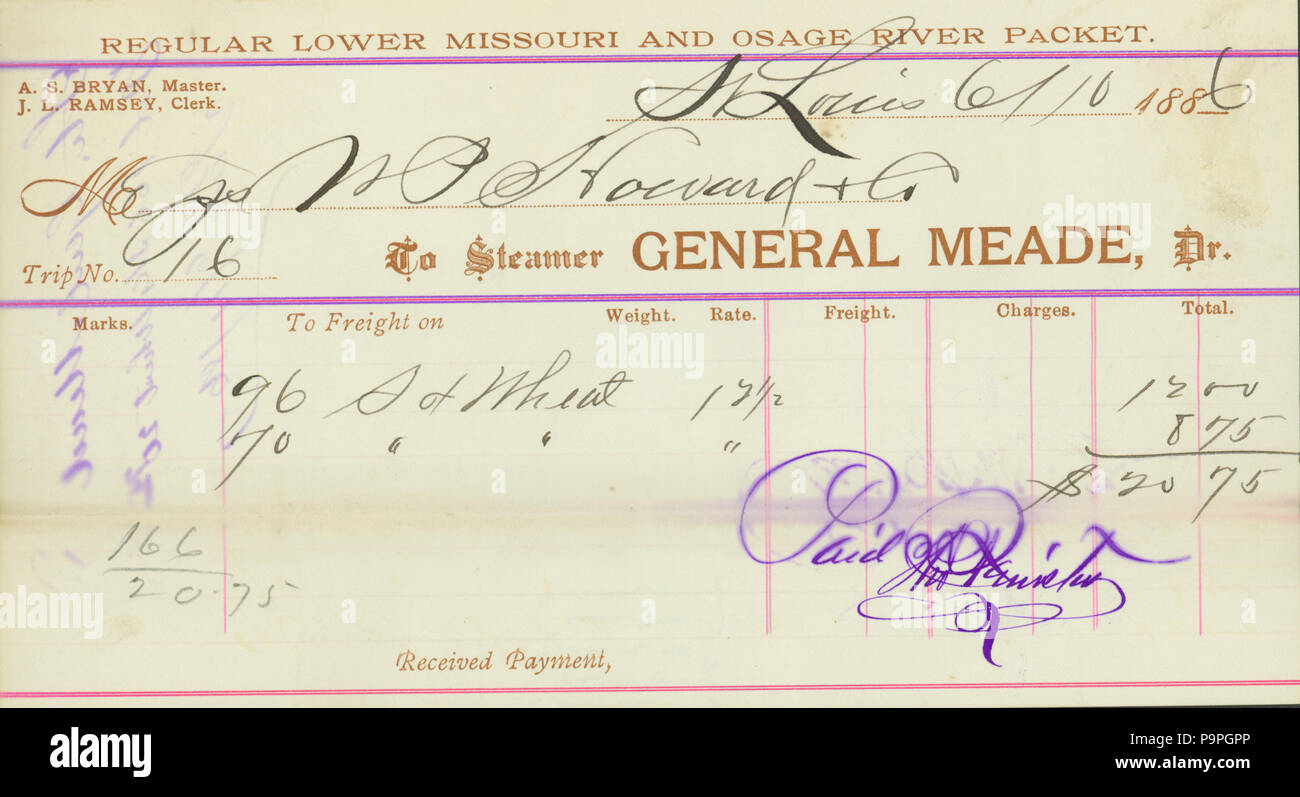 REGULAR LOWER MISSOURI AND OSAGE RIVER PACKET.
A. S. BRYAN, Master.
J. L. RAMSEY, Clerk.
St Louis 6/10 1886
Mess W P Howard & Co
Trip No. 16
To Steamer GENERAL MEADE, Dr.
Marks. To Freight on Weight. Rate. Freight. Charges. Total.
96 S x Wheat 12½ 12 00
70 " " " 8 75
$ 20 75
166
20.75
Paid
Received Payment,
alamy
Image ID: P9PGPP
www.alamy.com